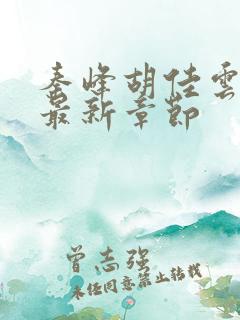 秦峰胡佳雲
最新章節
曾志强
未经同意禁止转载